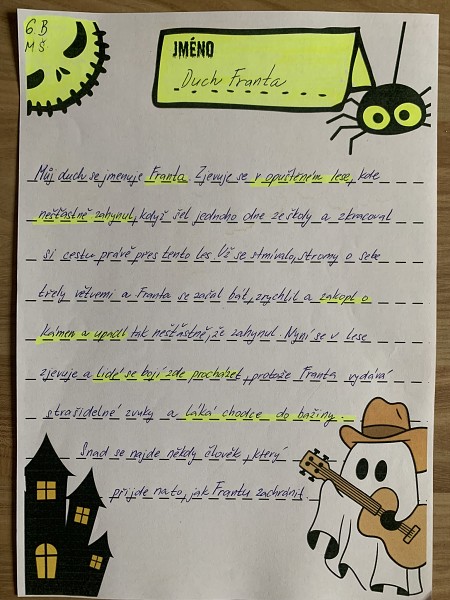 6B
MŠ
JMÉNO
Duch Franta
Můj duch se jmenuje Franta. Zjevuje se v opuštěném lese, kde
nešťastně zahynul, když šel jednoho dne ze školy a zkracoval
si cestu právě přes tento les. Už se stmívalo, stromy o sebe
třely větvemi a Franta se začal bát, zrychlil a zakopl o
kámen a upadl tak nešťastně, že zahynul. Nyní se v lese
zjevuje a lidé se bojí zde procházet, protože Franta vydává
strašidelné zvuky a láká chodce do bažiny.
Snad se najde někdy člověk, který
přijde na to, jak Frantu zachránit.